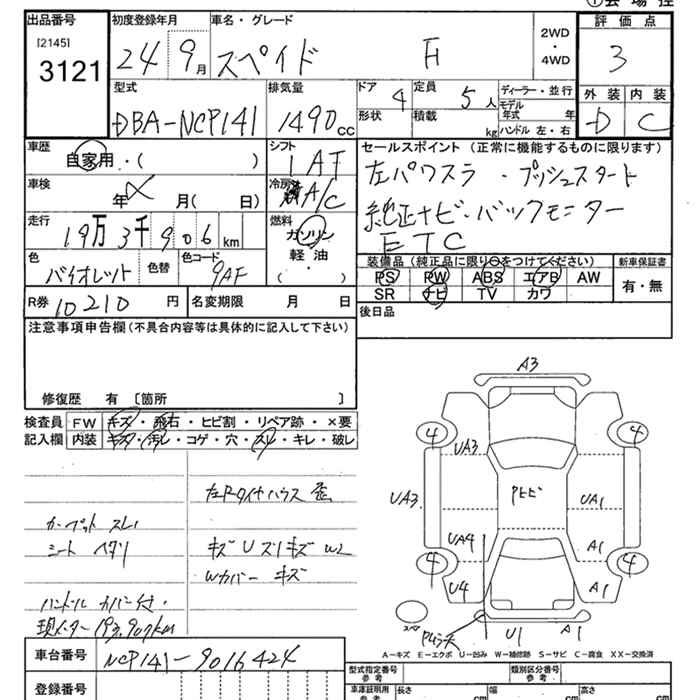 出品番号
[2145]
3121
初度登録年月
24 9月
車名・グレード
スペイド F
2WD
・
4WD
評価点
3
型式
DBA-NCP141
排気量
1490cc
ドア
4
定員
5人
形状
積載
kg
ディーラー・並行
モデル
年式 年
ハンドル 左・右
外装 内装
D C
車歴
自家用・( )
シフト
1AT
車検
年 月( 日)
冷房
A/C
セールスポイント(正常に機能するものに限ります)
左パワスラ・プッシュスタート
純正ナビ・バックモニター
ETC
走行
19万3千906km
燃料
ガソリン
軽油
( )
色
バイオレット
色替
色コード
9AF
装備品(純正品に限り○をつけてください)
PS PW ABS エアB AW
SR ナビ TV カワ
新車保証書
有・無
R券 10210円
名変期限 月 日
後日品
注意事項申告欄(不具合内容等は具体的に記入して下さい)
修復歴 有 〔箇所 〕
検査員
記入欄
FW キズ・飛石・ヒビ割・リペア跡・×要
内装 キズ・汚レ・コゲ・穴・スレ・キレ・破レ
左Rタイヤハウス 歪
カーペット スレ
シート ヘタリ
キズ U ズリキズ W2
Wカバー キズ
ハンドル カバー付
現メーター193,907km
A3
4
4
UA3
UA3
UA1
UA4
A1
4
4
U4
A1
U1
A1
A-キズ E-エクボ U-凹み W-補修跡 S-サビ C-腐食 XX-交換済
車台番号
NCP141-9016424
登録番号
型式指定番号
参考
類別区分番号
参考
車庫証明用
参考
長さ cm
幅 cm
高さ cm